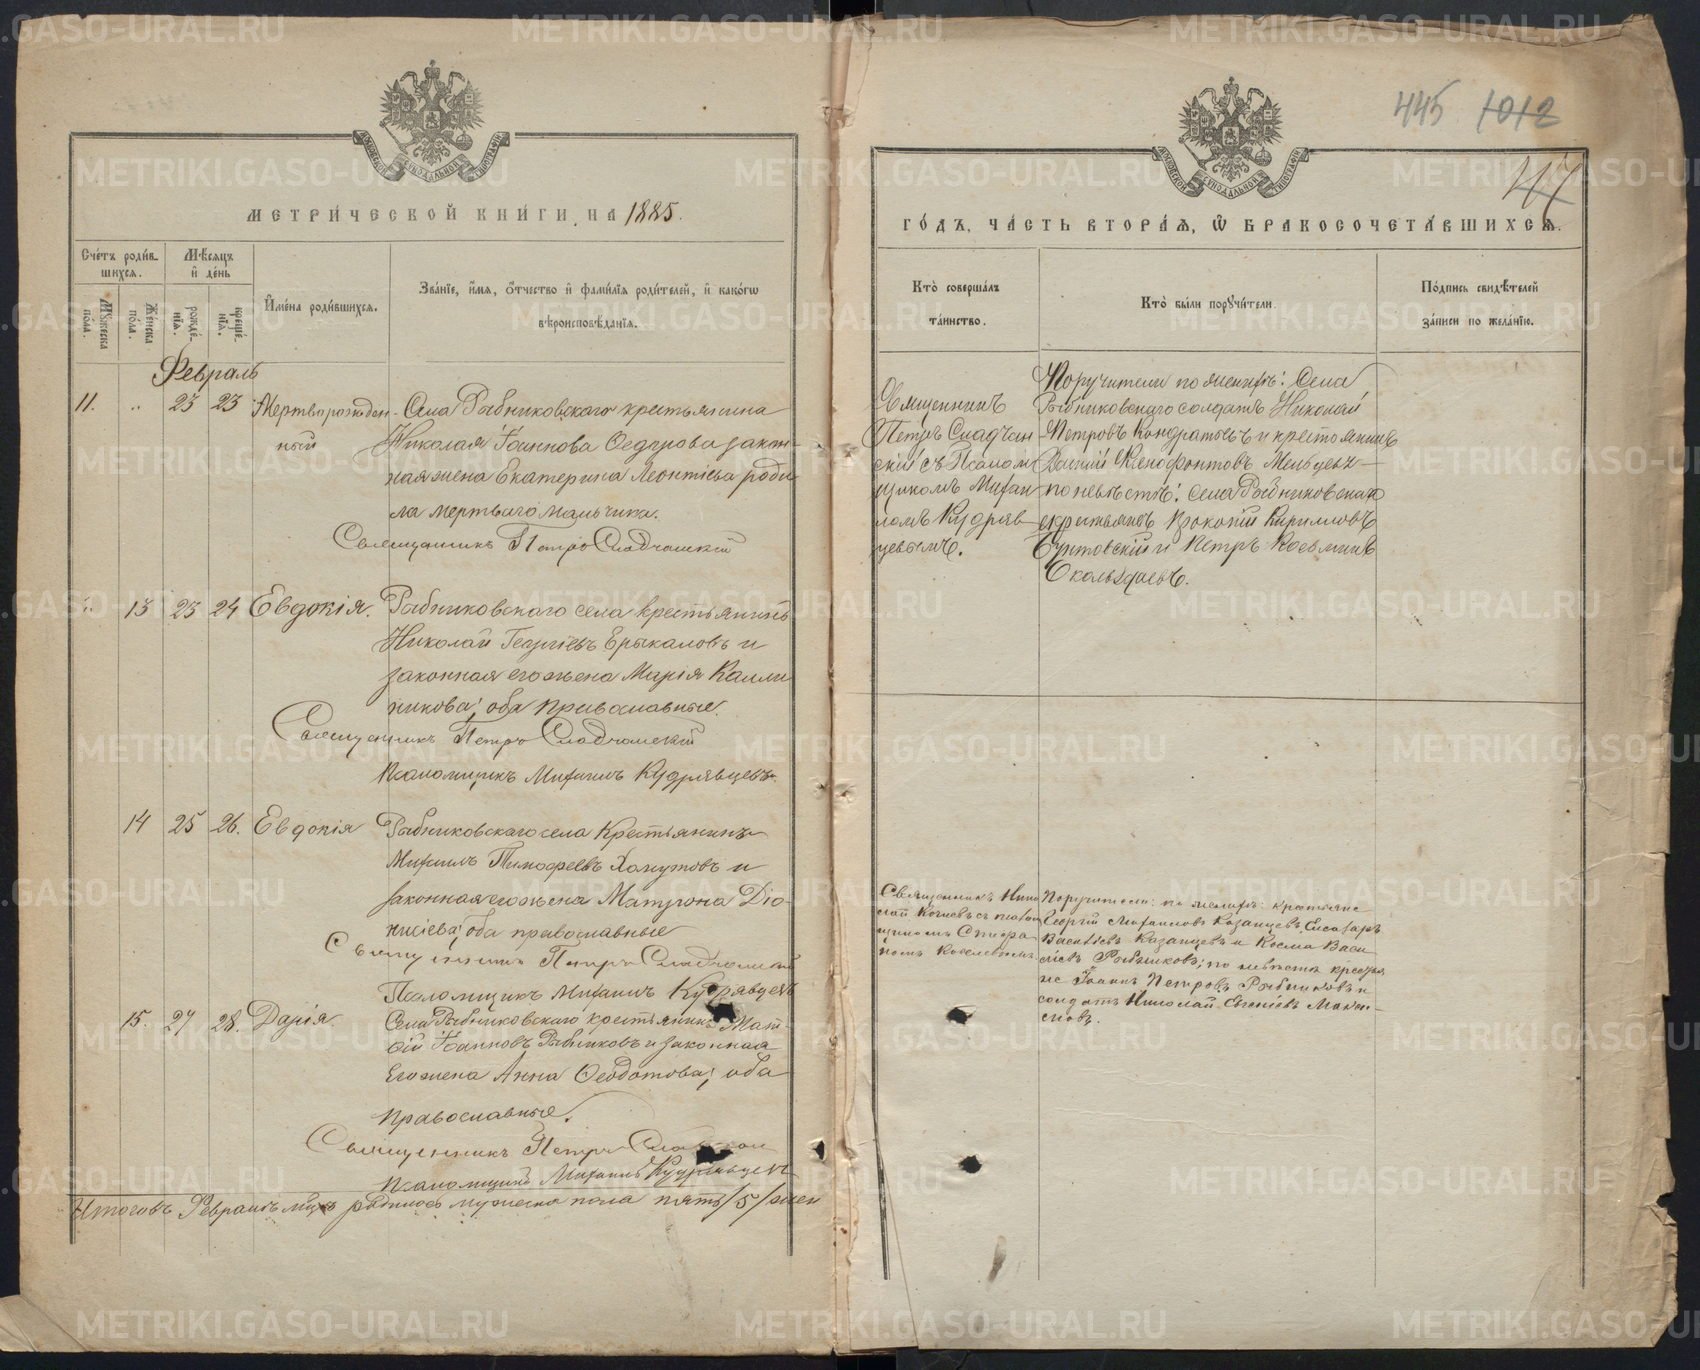 МЕТРИ́ЧЕСКОЙ КНИ́ГИ НА 1885.
Сче́тъ роди́в-
шихся.
Мѣ́сяцъ
и҆ де́нь
Му́жеска
по́ла.
Же́нска
по́ла.
рожде́-
нїѧ.
креще́-
нїѧ.
И҆мена̀ роди́вшихся.
Зва́нїе, и҆́мя, ѻ҆́тчество и҆ фами́лїя роди́телей, и҆ како́гѡ
вѣроисповѣ́данїя.
Февраль
11. " 23 23 Мертворожден-
ный
Села Рыбниковскаго крестьянина
Николая Іоаннова Федорова закон-
ная жена Екатерина Леонтіева роди-
ла мертваго мальчика.
Священникъ Петръ Сладчанскій
" 13 23 24 Евдокія.
Рыбниковскаго села крестьянинъ
Николай Георгіевъ Ерыкаловъ и
законная его жена Марія Калли-
никова; оба православные.
Священникъ Петръ Сладчанскій
Псаломщикъ Михаилъ Кудрявцевъ.
14 25 26. Евдокія
Рыбниковскаго села Крестьянинъ
Михаилъ Тимофеевъ Хомутовъ и
законная его жена Матрона Діо-
нисіева; оба православные
Священникъ Петръ Сладчанскій
Псаломщикъ Михаилъ Кудрявцевъ
15. 27 28. Дарія
Села Рыбниковскаго крестьянинъ Мат-
фій Іоанновъ Рыбниковъ и законная
его жена Анна Феодотова; оба
православные.
Священникъ Петръ
Псаломщикъ Михаилъ Кудрявцевъ
Итогово Февралѣ мцѣ родилось мужеска пола пять /5/ жен
445 1012
47
ГО́ДЪ, ЧА́СТЬ ВТОРА́Я, Ѡ҆ БРАКОСОЧЕТА́ВШИХСЯ.
Кто̀ соверша́лъ
та́инство.
Кто̀ бы́ли поручи́тели.
По́дпись свидѣ́телей
за́писи по жела́нїю.
Священникъ
Петръ Сладчан-
скій съ Псалом-
щикомъ Михаи-
ломъ Кудряв-
цевымъ.
Поручители по женихѣ: Села
Рыбниковскаго солдатъ Николай
Петровъ Кондратьевъ и крестьянинъ
Ксенофонтовъ
по невѣстѣ: села Рыбниковскаго
крестьяне Прокопій Кирилловъ
и Петръ Косминъ
Священникъ Нико-
лай съ псалом-
щикомъ Стефа-
номъ
Поручители: по женихѣ: крестьяне
Георгій Михаиловъ Казанцевъ, Елеазаръ
Васильевъ Казанцевъ и Косма Васи-
ліевъ Рыбниковъ; по невѣстѣ крестья-
не Іоаннъ Петровъ Рыбниковъ и
солдатъ Николай Евгеніевъ